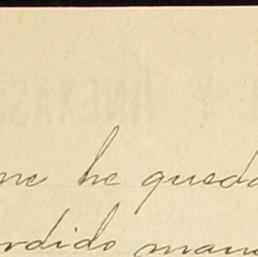 me he queda
rdido mane